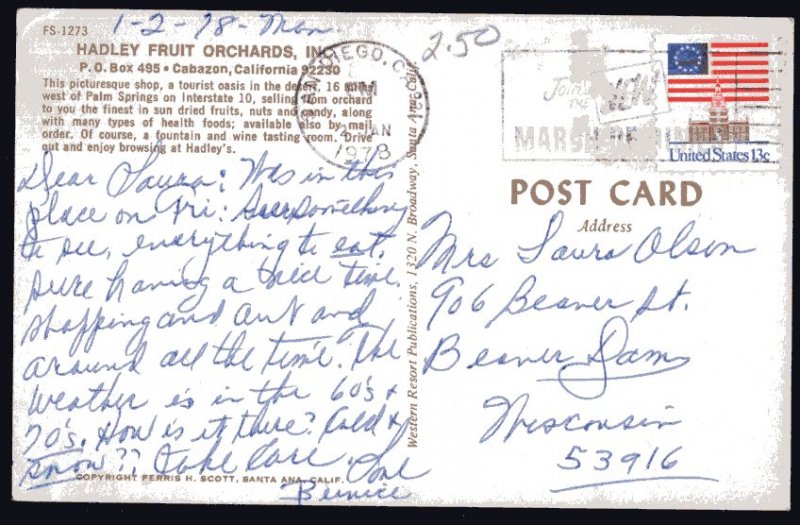 1-2-78-Mon.
2.50
FS-1273
HADLEY FRUIT ORCHARDS, INC.
P.O. Box 495 • Cabazon, California 92230
This picturesque shop, a tourist oasis in the desert, 16 miles
west of Palm Springs on Interstate 10, selling from orchard
to you the finest in sun dried fruits, nuts and candy, along
with many types of health foods; available also by mail
order. Of course, a fountain and wine tasting room. Drive
out and enjoy browsing at Hadley's.
SAN DIEGO, CA 921
PM
2 JAN
1978
JOIN
THE
MARCH OF DIMES
United States 13c
Dear Laura: Was in this
place on Fri: Sure something
to see, everything to eat.
Sure having a nice time.
Shopping and out and
around all the time. The
weather is in the 60's &
70's. How is it there? Cold &
snow?? Take Care. Love
Bernice
COPYRIGHT FERRIS H. SCOTT, SANTA ANA, CALIF.
Western Resort Publications, 1320 N. Broadway, Santa Ana, Calif.
POST CARD
Address
Mrs Laura Olson
906 Beaver St.
Beaver Dam
Wisconsin
53916